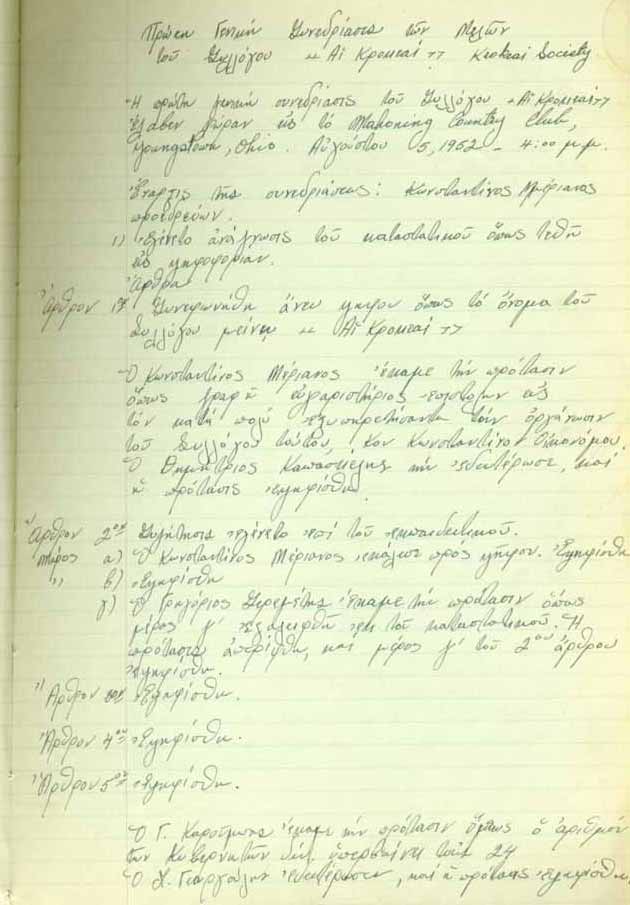 Πρώτη Γενική Συνεδρίασις τῶν Μελῶν
τοῦ Συλλόγου «Αἱ Κροκεαί» Krokeai Society
Ἡ πρώτη γενική συνεδρίασις τοῦ Συλλόγου «Αἱ Κροκεαί»
ἔλαβεν χώραν εἰς τό Mahoning Country Club,
Youngstown, Ohio. Αὐγούστου 5, 1952 - 4:00 μ.μ.
Ἔναρξις τῆς συνεδριάσεως: Κωνσταντίνος Μέριανος
προεδρεύων.
1) Ἐγένετο ἀνάγνωσις τοῦ καταστατικοῦ ὅπως τεθῆ
εἰς ψηφοφορίαν.
Ἄρθρα
Ἄρθρον 1ον Συνεφωνήθη ἄνευ ψήφου ὅπως τό ὄνομα τοῦ
Συλλόγου μείνῃ «Αἱ Κροκεαί»
Ὁ Κωνσταντίνος Μέριανος ἔκαμε τήν πρότασιν
ὅπως γραφῆ εὐχαριστήριος ἐπιστολή εἰς
τόν κατά πολύ ἐξυπηρετήσαντα τήν ὀργάνωσιν
τοῦ Συλλόγου τούτου, κον Κωνσταντίνον Οἰκονόμου.
Ὁ Δημήτριος Καπασκέλης τήν ἐδευτέρωσε, καί
ἡ πρότασις ἐψηφίσθη.
Ἄρθρον 2ον Συζήτησις ἐγένετο ἐπί τοῦ ἐκπαιδευτικοῦ.
μέρος α) Ὁ Κωνσταντίνος Μέριανος ἐκάλεσε προς ψῆφον. Ἐψηφίσθη
,, β) Ἐψηφίσθη
γ) Ὁ Γρηγόριος Σερεμέτης ἔκαμε τήν πρότασιν ὅπως
μέρος γ' ἐξαλειφθῆ ἐκ τοῦ καταστατικοῦ. Ἡ
πρότασις ἀπερίφθη, και μέρος γ' τοῦ 2ου ἄρθρου
ἐψηφίσθη.
Ἄρθρον 3ον Ἐψηφίσθη.
Ἄρθρον 4ον Ἐψηφίσθη.
Ἄρθρον 5ον Ἐψηφίσθη.
Ὁ Γ. Καρούμπας ἔκαμε τήν πρότασιν ὅπως ὁ ἀριθμόν
τῶν Κυβερνητῶν μή ὑπερβαίνει τούς 24
Ὁ Χ. Γεωργούλης ἐδευτέρωσεν, καί ἡ πρότασις ἐψηφίσθη.